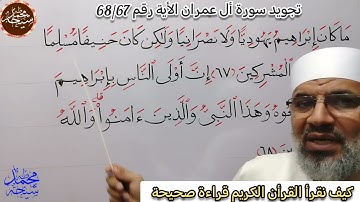 تجويد سورة آل عمران الأية رقم 68/67
مَا كَانَ إِبْرَاهِيمُ يَهُودِيًّا وَلَا نَصْرَانِيًّا وَلَٰكِن كَانَ حَنِيفًا مُّسْلِمًا
ٱلْمُشْرِكِينَ ﴿٦٧﴾ إِنَّ أَوْلَى ٱلنَّاسِ بِإِبْرَاهِيمَ
وَهَٰذَا ٱلنَّبِىُّ وَٱلَّذِينَ ءَامَنُوا۟ وَٱللَّهُ
﴿٦٨﴾
محمد سبحة
كيف نقرأ القرأن الكريم قراءة صحيحة